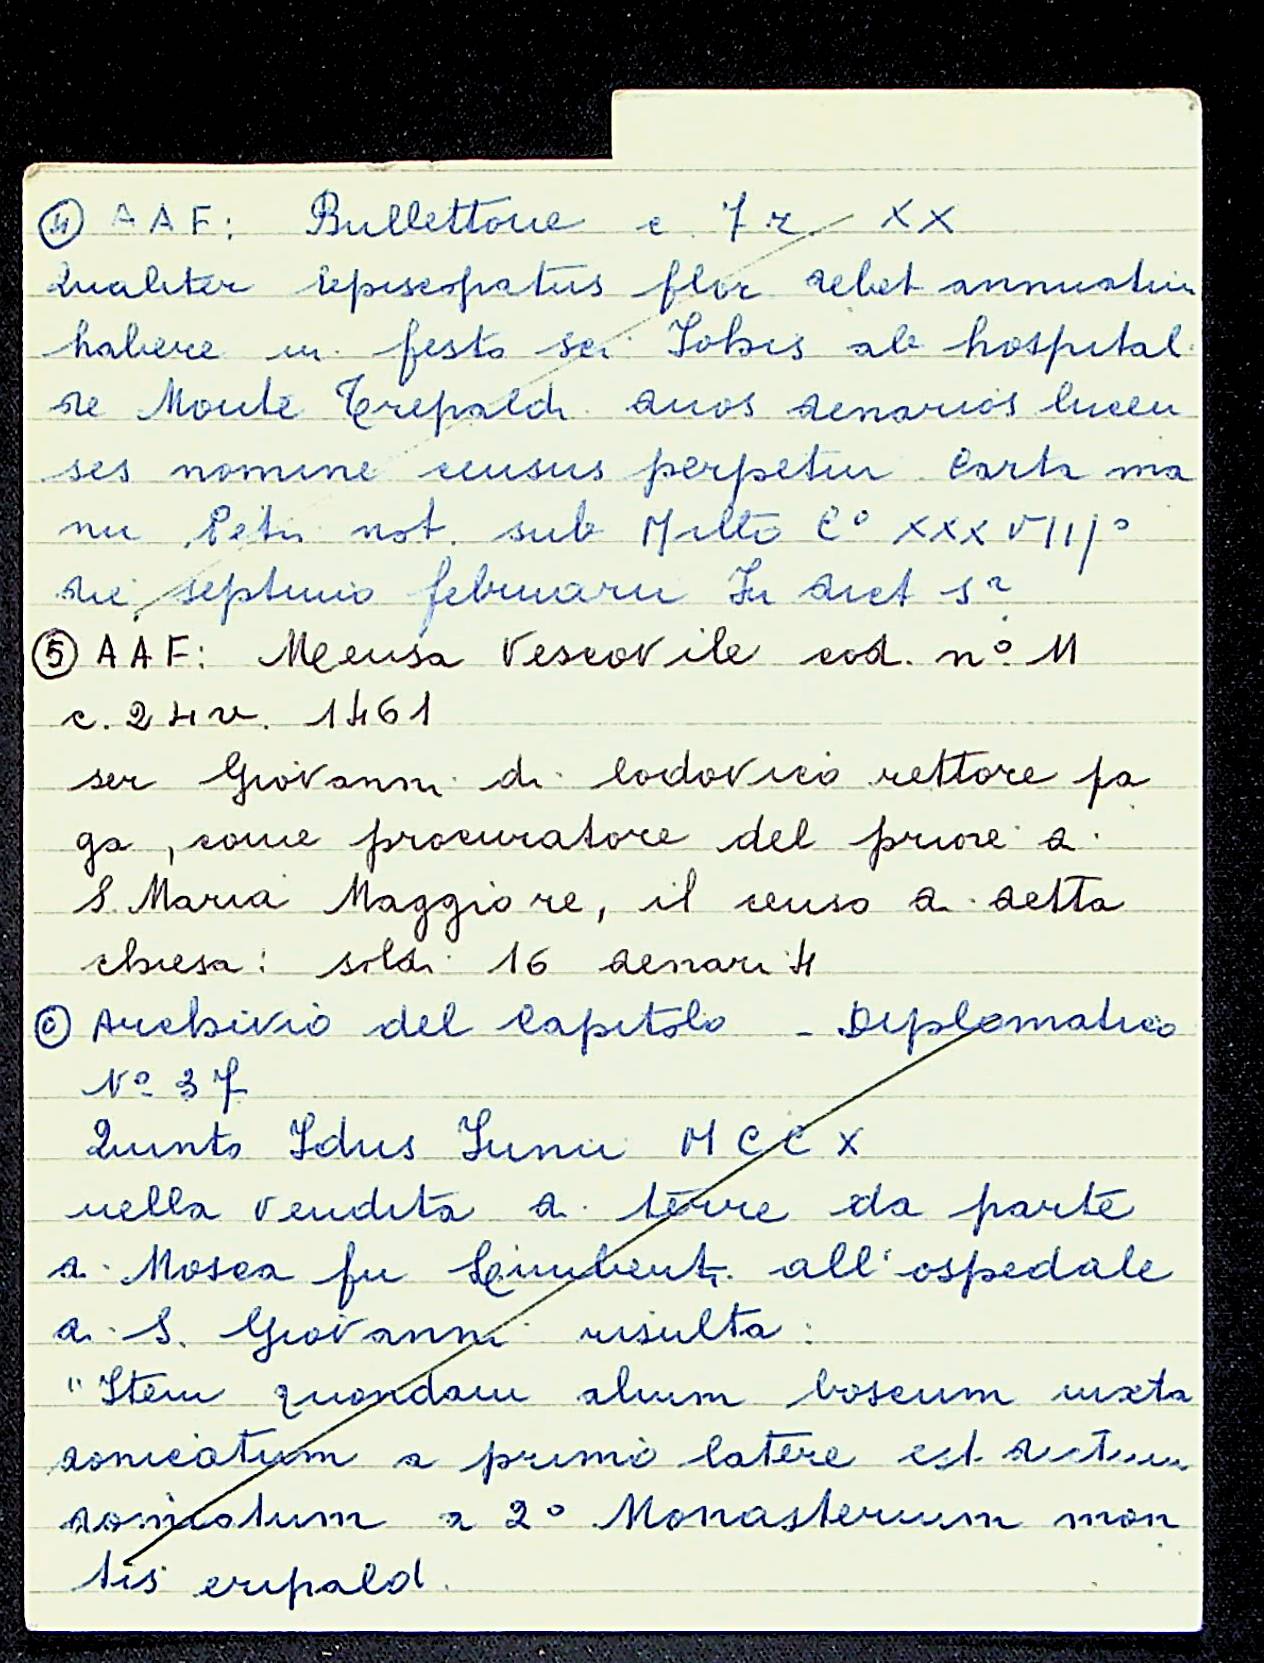 ④ A A F: Bullettone c. 7 r. XX
Qualiter Episcopatus flor debet annuatim
habere in festo sci Iohis ab hospital.
de Monte Trepaldi duos denarios lucen
ses nomine census perpetui Carta ma
nu Petri not. sub Millo C° XXXVIII°
die septimo februarii Indict s²
⑤ A A F: Mensa Vescovile cod. n° 11
c. 24 v. 1461
ser Giovanni di Lodovico rettore pa
ga, come procuratore del priore di
S. Maria Maggiore, il censo di detta
chiesa: soldi 16 denari 4
⑥ Archivio del Capitolo - Diplomatico
N° 37
Quinto Idus Iunii M C C X
nella vendita di terre da parte
di Mosca fu Lamberti all'ospedale
di S. Giovanni risulta:
"Item quondam alium boscum iuxta
donicatum a primo latere est dictum
donicatum a 2° Monasterium mon
tis eripald.